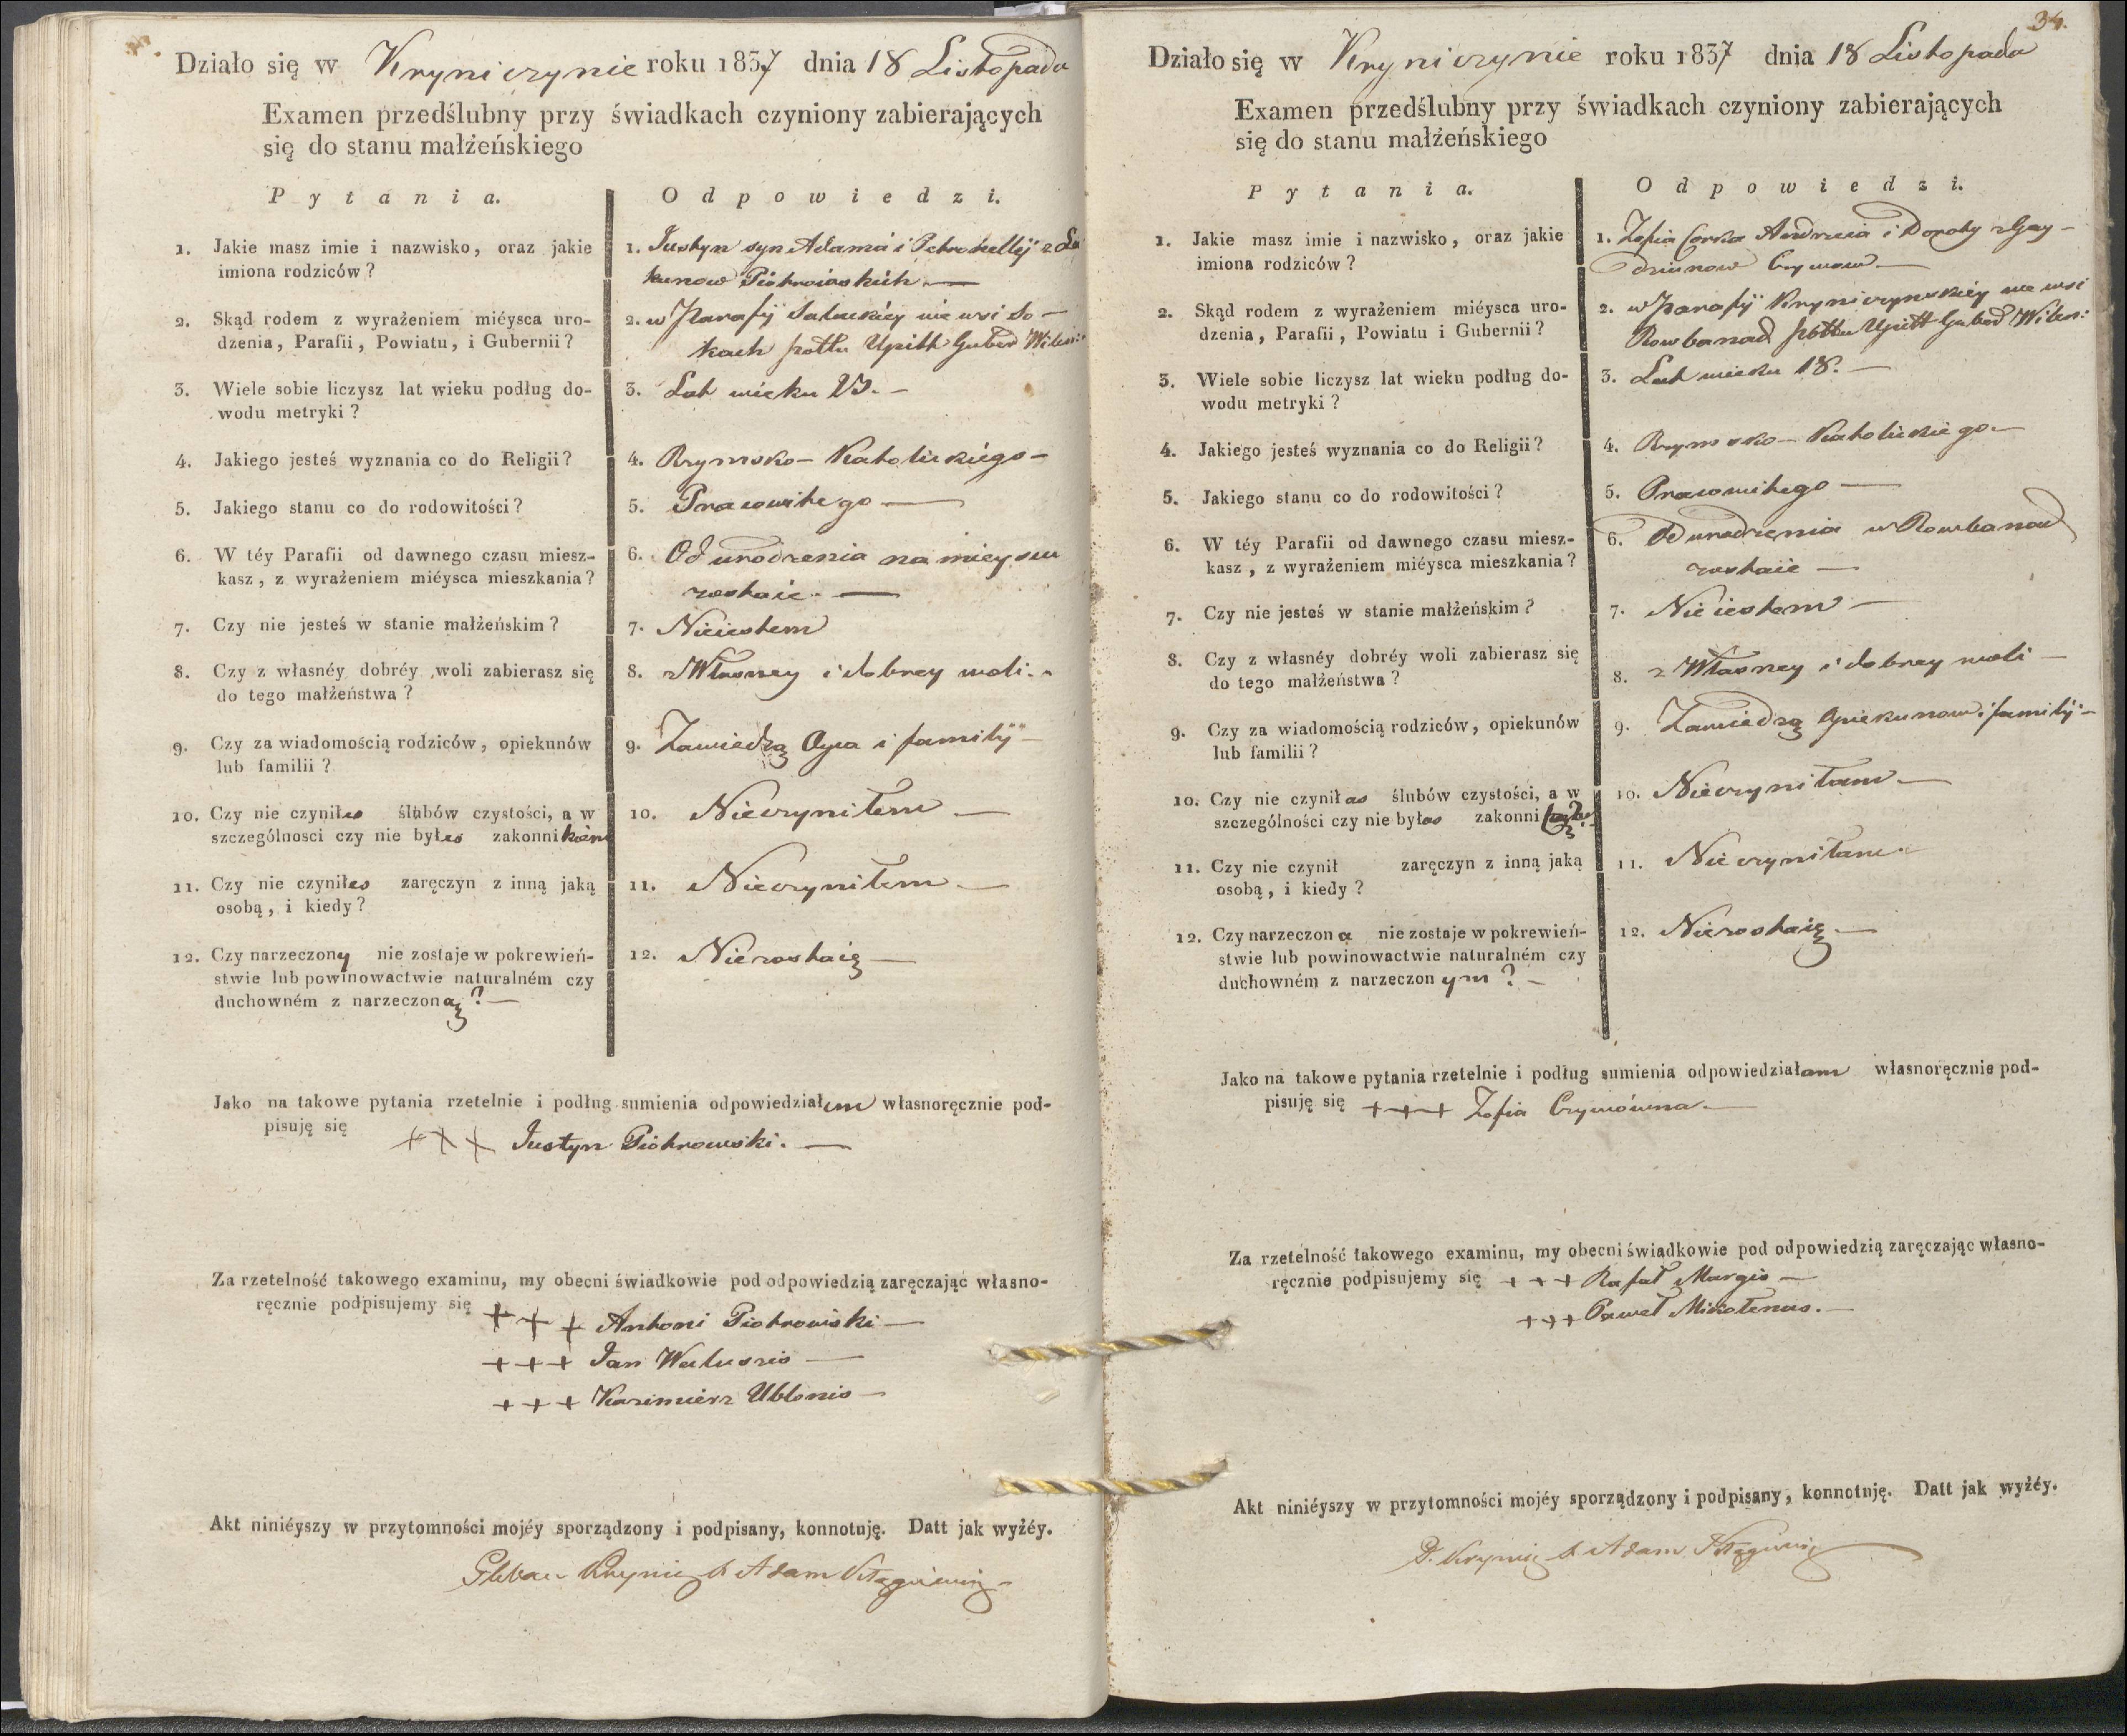 Działo się w Kryniczynie roku 1837 dnia 18 Listopada
Examen przedślubny przy świadkach czyniony zabierających
się do stanu małżeńskiego
Pytania.
Odpowiedzi.
1. Jakie masz imie i nazwisko, oraz jakie
imiona rodziców?
1. Justyn syn Adama i Petronellij z
kunow Piotrowskich —
2. Skąd rodem z wyrażeniem miéysca uro-
dzenia, Parafii, Powiatu, i Gubernii?
2. w Parafij Sałackiey we wsi So-
kach Upitt Guber Wileń:
3. Wiele sobie liczysz lat wieku podług do-
wodu metryki?
3. Lat wieku 23. —
4. Jakiego jesteś wyznania co do Religii?
4. Rzymsko-Katolickiego —
5. Jakiego stanu co do rodowitości?
5. Pracowitego —
6. W téy Parafii od dawnego czasu miesz-
kasz, z wyrażeniem miéysca mieszkania?
6. Od urodzenia na mieyscu
zostaie. —
7. Czy nie jesteś w stanie małżeńskim?
7. Nieiestem
8. Czy z własnéy dobréy woli zabierasz się
do tego małżeństwa?
8. z Własney i dobrey woli. -
9. Czy za wiadomością rodziców, opiekunów
lub familii?
9. Zawiedzą Oyca i familij —
10. Czy nie czyniłes ślubów czystości, a w
szczególnosci czy nie byłes zakonnikiem
10. Nieczyniłem —
11. Czy nie czyniłes zaręczyn z inną jaką
osobą, i kiedy?
11. Nieczyniłem —
12. Czy narzeczony nie zostaje w pokrewień-
stwie lub powinowactwie naturalném czy
duchowném z narzeczoną? —
12. Niezostaię —
Jako na takowe pytania rzetelnie i podług sumienia odpowiedziałem własnoręcznie pod-
pisuję się +++ Justyn Piotrowski. —
Za rzetelność takowego examinu, my obecni świadkowie pod odpowiedzią zaręczając własno-
ręcznie podpisujemy się +++ Antoni Piotrowski —
+++ Jan Waluszis —
+++ Kazimierz Ublonis —
Akt niniéyszy w przytomności mojéy sporządzony i podpisany, konnotuję. Datt jak wyżéy.
Adam
34.
Działo się w Kryniczynie roku 1837 dnia 18 Listopada
Examen przedślubny przy świadkach czyniony zabierających
się do stanu małżeńskiego
Pytania.
Odpowiedzi.
1. Jakie masz imie i nazwisko, oraz jakie
imiona rodziców?
1. Zofia Corka Andrzeia i Doroty z Gay-
dziunow Czymow —
2. Skąd rodem z wyrażeniem miéysca uro-
dzenia, Parafii, Powiatu i Gubernii?
2. w Parafij Kryniczynskiey we wsi
Rowbanach Upitt Guber Wileń:
3. Wiele sobie liczysz lat wieku podług do-
wodu metryki?
3. Lat wieku 18. —
4. Jakiego jesteś wyznania co do Religii?
4. Rzymsko-Katolickiego —
5. Jakiego stanu co do rodowitości?
5. Pracowitego —
6. W téy Parafii od dawnego czasu miesz-
kasz, z wyrażeniem miéysca mieszkania?
6. Od urodzenia w Rowbanach
zostaie —
7. Czy nie jesteś w stanie małżeńskim?
7. Nieiestem —
8. Czy z własnéy dobréy woli zabierasz się
do tego małżeństwa?
8. z Własney i dobrey woli —
9. Czy za wiadomością rodziców, opiekunów
lub familii?
9. Zawiedzą Opiekunow i familij —
10. Czy nie czyniłas ślubów czystości, a w
szczególności czy nie byłas zakonni
10. Nieczyniłam —
11. Czy nie czynił zaręczyn z inną jaką
osobą, i kiedy?
11. Nieczyniłam —
12. Czy narzeczona nie zostaje w pokrewień-
stwie lub powinowactwie naturalném czy
duchowném z narzeczonym? —
12. Niezostaię —
Jako na takowe pytania rzetelnie i podług sumienia odpowiedziałam własnoręcznie pod-
pisuję się +++ Zofia Czymówna —
Za rzetelność takowego examinu, my obecni świadkowie pod odpowiedzią zaręczając własno-
ręcznie podpisujemy się +++ Rafał Margis —
+++ Paweł Mikołenas. —
Akt niniéyszy w przytomności mojéy sporządzony i podpisany, konnotuję. Datt jak wyżéy.
Adam